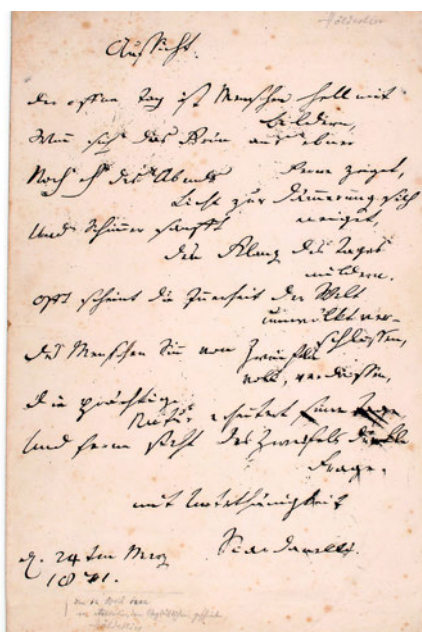 Hölderlin
Aussicht.
Der offne Tag ist Menschen hell mit
Bildern,
Wenn sich das Grün aus ebner
Ferne zeiget,
Noch eh' des Abends
Licht zur Dämmerung sich
neiget,
Und Schimmer sanft
den Klang des Tages
mildern.
Oft scheint die Innerheit der Welt
umwölkt ver-
schlossen,
Des Menschen Sinn von Zweifeln
voll, verdrossen,
Die prächtige
Natur erheitert seine Tage
Und ferne steht des Zweifels dunkle
Frage.
mit Unterthänigkeit
Scardanelli.
24 März
1871.